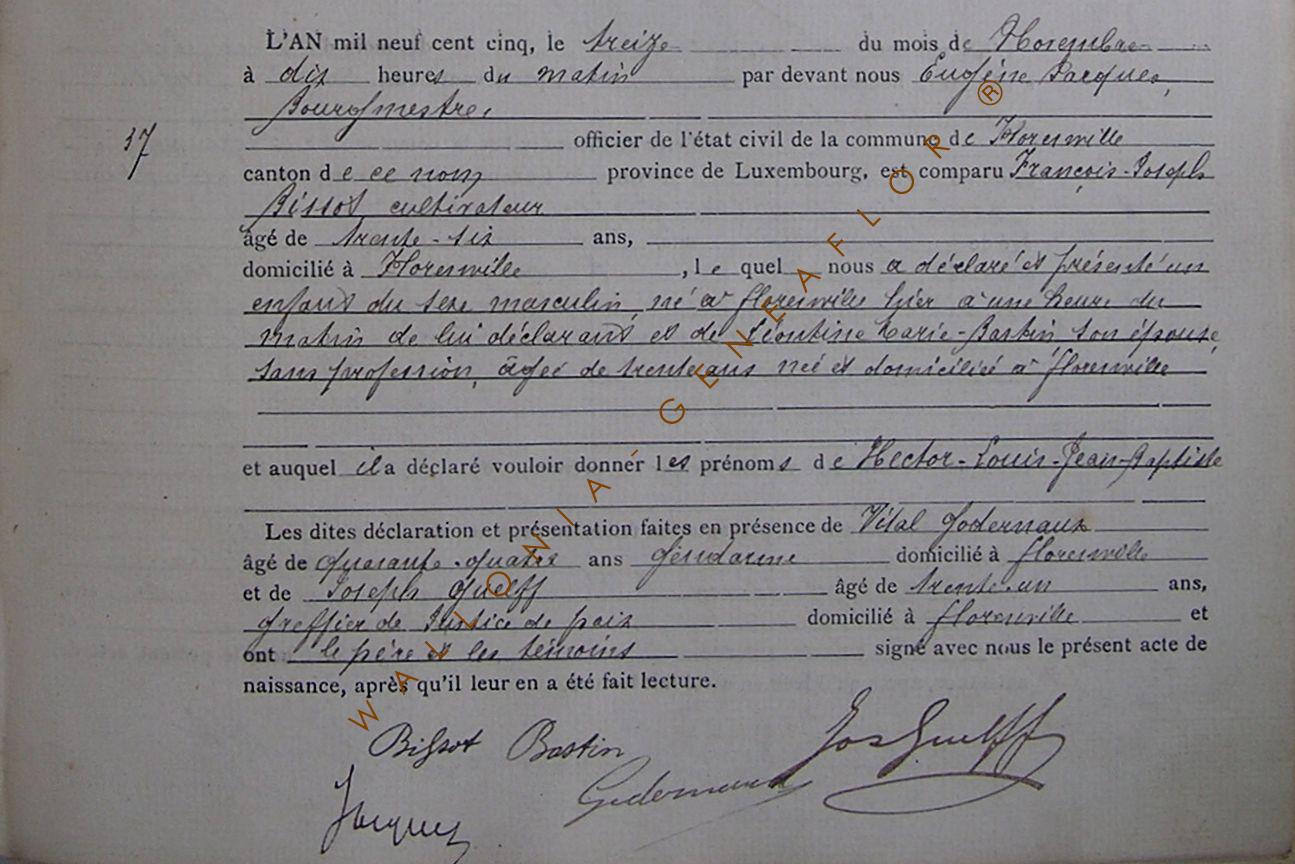 L'AN mil neuf cent cinq, le treize du mois de Novembre
à dix heures du matin par devant nous Eugène Jacques,
Bourgmestre,
37
officier de l'état civil de la commune de Florenville
canton de ce nom province de Luxembourg, est comparu François-Joseph
Bissot, cultivateur
âgé de trente-six ans,
domicilié à Florenville, lequel nous a déclaré et présenté un
enfant du sexe masculin, né à florenville hier à une heure du
matin de lui déclarant et de Léontine Marie-Bastin son épouse,
sans profession, âgée de trente ans née et domiciliée à florenville
et auquel il a déclaré vouloir donner les prénoms de Hector-Louis-Jean-Baptiste
Les dites déclaration et présentation faites en présence de Vital Godernaux
âgé de quarante-quatre ans gendarme domicilié à florenville
et de Joseph Guelff âgé de trente-un ans,
greffier de Justice de paix domicilié à florenville et
ont le père et les témoins signé avec nous le présent acte de
naissance, après qu'il leur en a été fait lecture.
Bissot Bastin Jos Guelff
Jacques Godernaux
WALLONIA GENEAFLOR ®